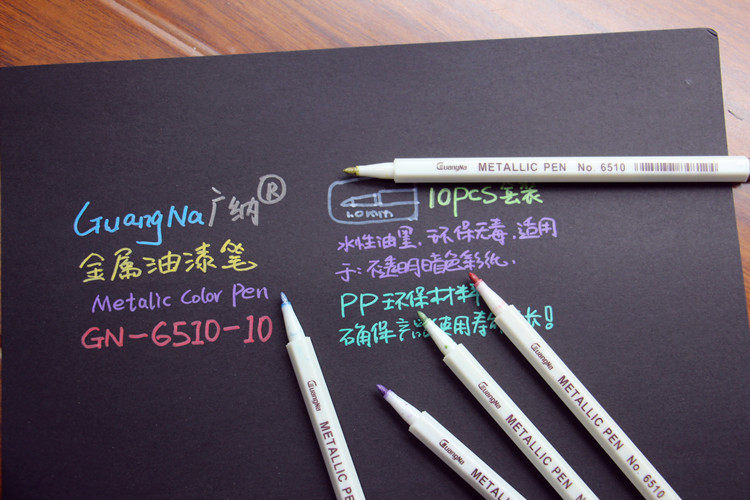 GuangNa广纳®
金属油漆笔
Metalic Color Pen
GN-6510-10
1.0mm
10pcs套装
水性油墨.环保无毒.适用
于:不透明暗色彩纸.
PP环保材料
确保产品使用寿 长!
GuangNa METALLIC PEN No. 6510
GuangNa METALLIC PEN
GuangNa METALLIC PEN
GuangNa METALLIC PEN No.
GuangNa METALLIC PEN No. 6510